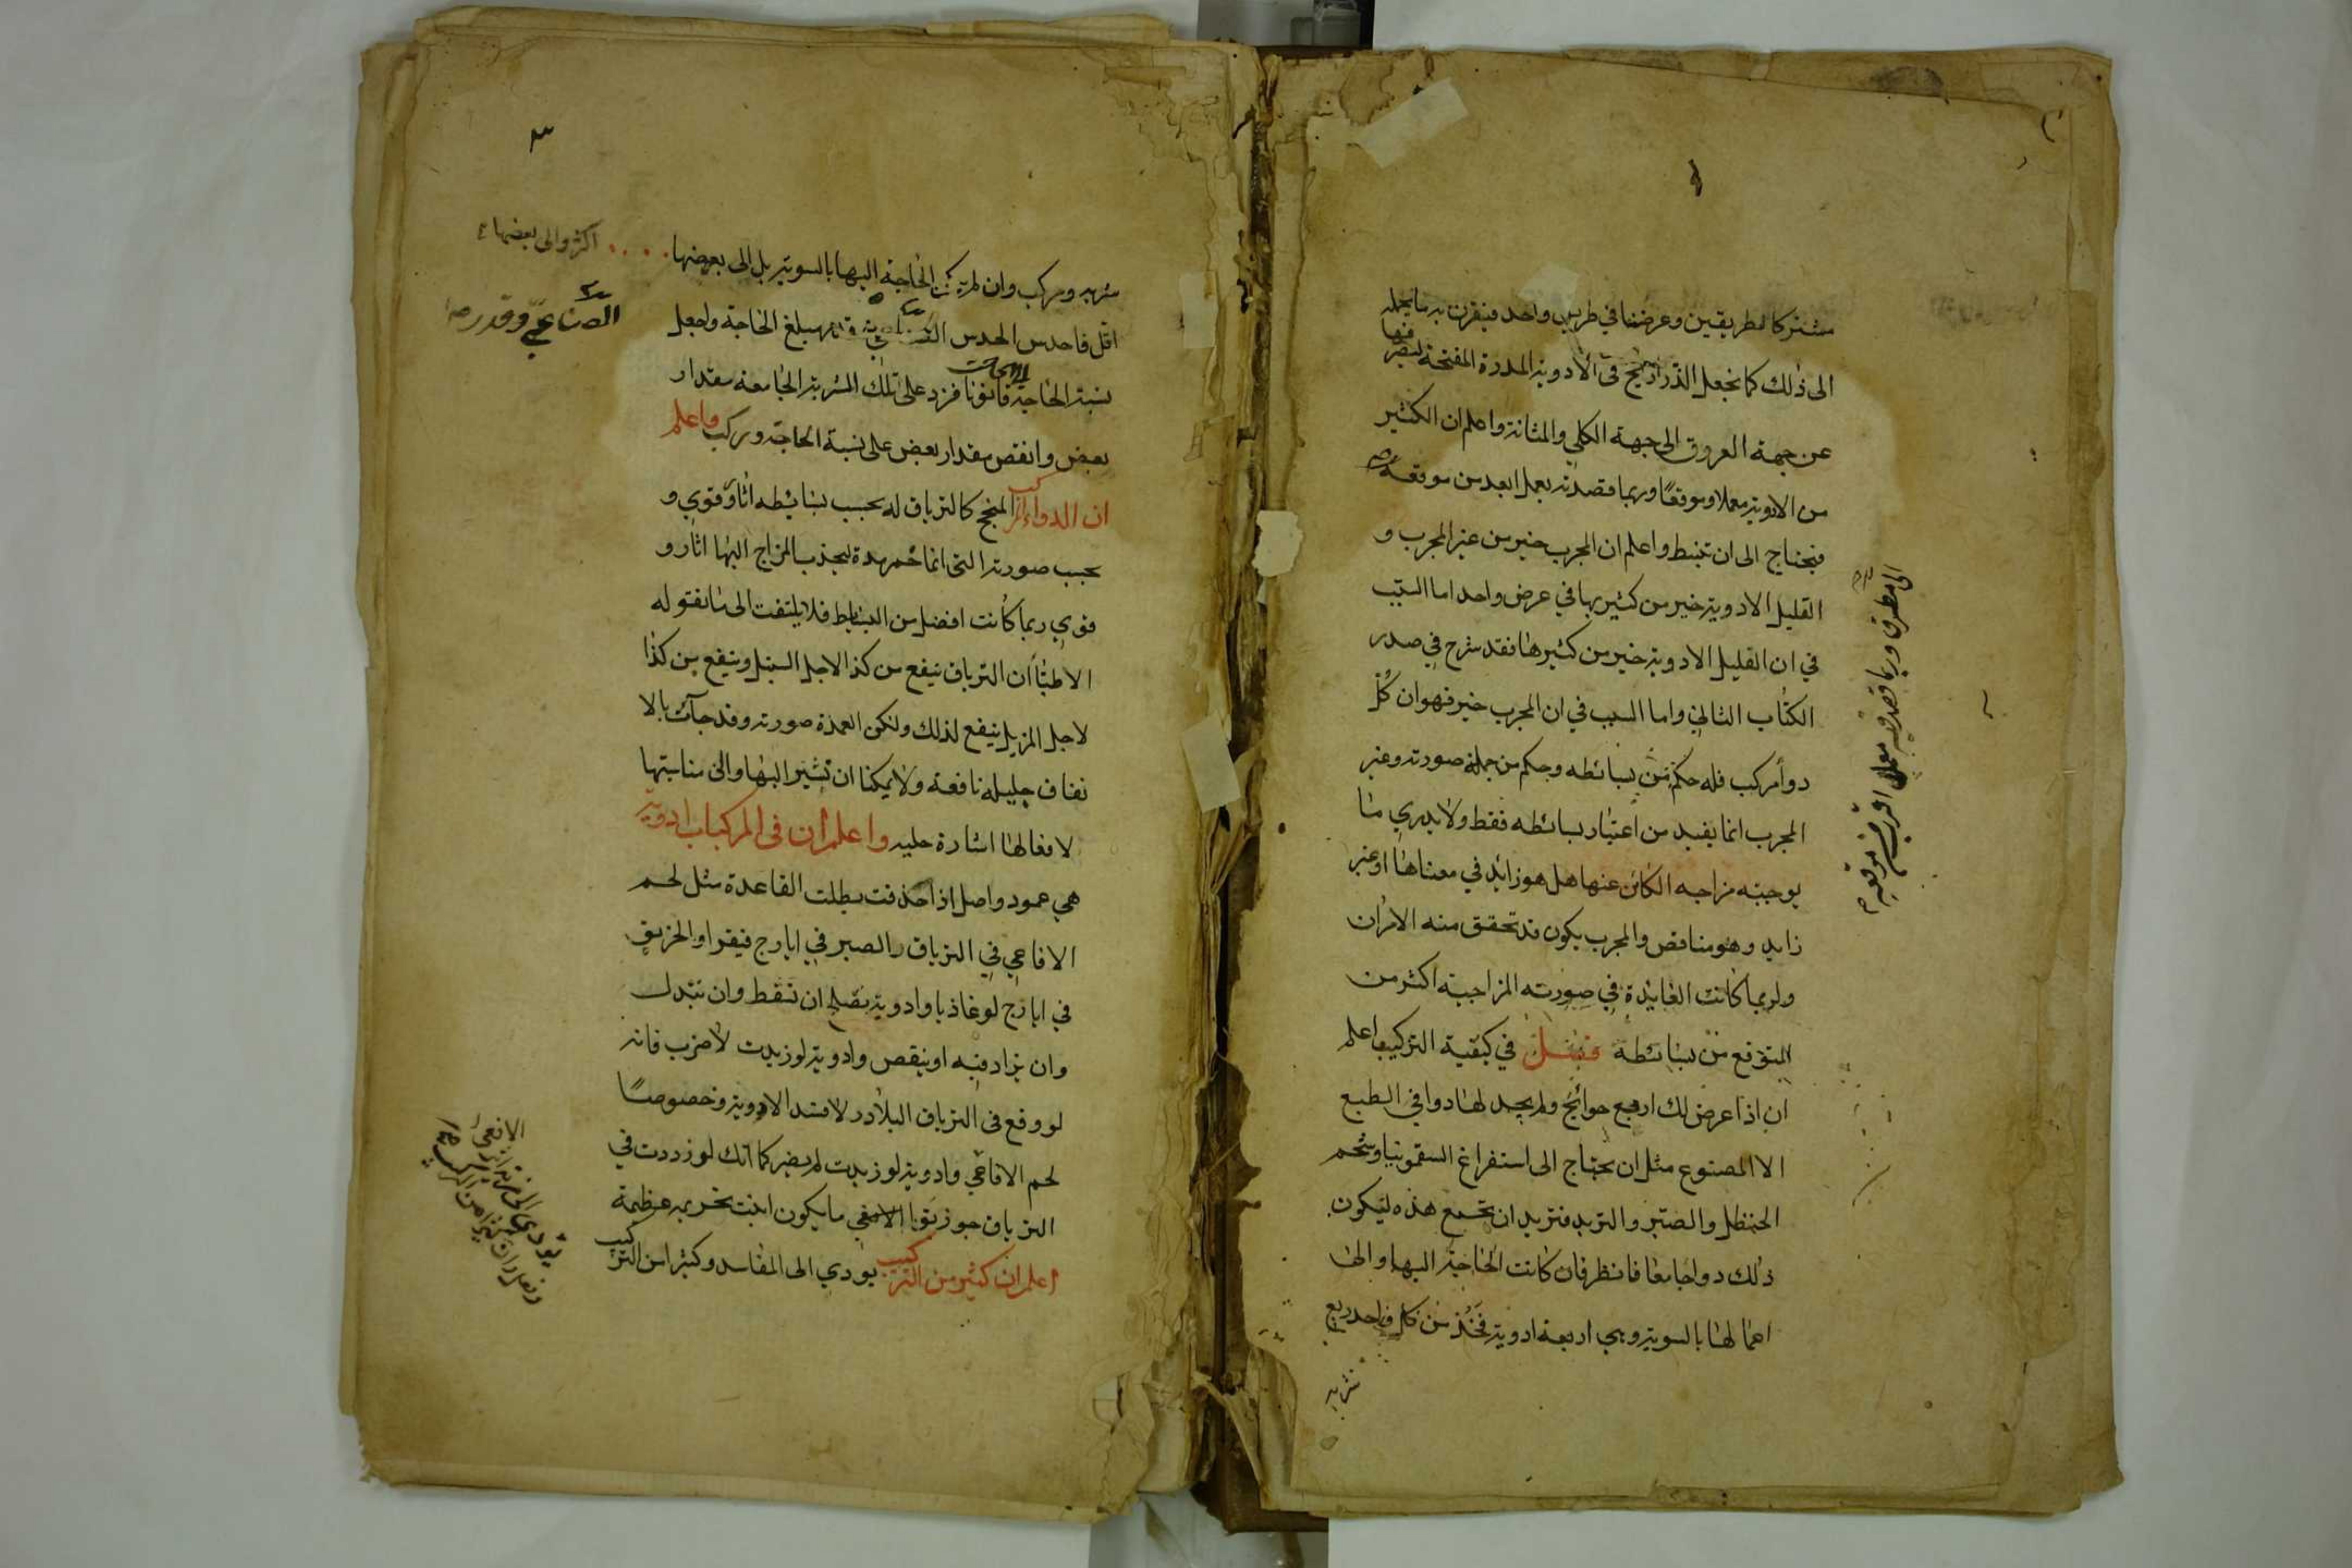 مشتركا لطريقين وعرضنا في طريق واحد فيقرن به ما يحمله
الى ذلك كما نجعل الذراريح في الادوية المدرة المفتحة ليصرفها
عن جهة العروق الى جهة الكلى والمثانة واعلم ان الكثير
من الادوية معملا وموقعا وربما قصدته يعمل ابعد من موقعه
فيحتاج الى ان واعلم ان المجرب خير من غير المجرب و
القليل الادوية خير من كثيرها في غرض واحد اما السبب
في ان القليل الادوية خير من كثيرها فقد شرح في صدر
الكتاب الثاني واما السبب في ان المجرب خير فهو ان كل
دواء مركب فله حكم من بسائطه وحكم من جملة صورته وغير
المجرب انما يفيد من اعتبار بسائطه فقط ولا يدري ما
يوجبه مزاجه الكائن عنها هل هو زائد في معناها او غير
زايد وهو مناقض والمجرب يكون قد تحقق منه الامران
ولربما كانت الفايدة في صورته المزاجية اكثر من
المتوقع من بسائطة فصل في كيفية التركيب اعلم
ان اذا عرض لك اربع حوائج ولم يجد لها دوا في الطبع
الا المصنوع مثل ان يحتاج الى استفراغ السقمونيا وشحم
الحنظل والصبر والتربد فتريد ان تجمع هذه ليكون
ذلك دوا جامعا فانظر فان كانت الحاجة اليها والى
اعمالها بالسوية وهي اربعة ادوية فخذ من كل واحد ربع
شربه
الى طرق وربما قصد فيه معملا اقرب من موقعه
٣
شربه وركب وان لم يكن الحاجة اليها بالسوية بل الى بعضها اكثر والى بعضها
اقل فاحدس الحدس مبلغ الحاجة واجعل
الصناعي وقدر
نسبة الحاجة قانونا فزد على تلك الشربة الجامعة مقدار
بعض وانقص مقدار بعض على نسبة الحاجة وركب واعلم
ان الدواء المركب المنجح كالترياق له بحسب بسائطه اثار وقوي و
بحسب صورته التي انما خمر مدة ليجذب المزاج اليها اثار و
قوي ربما كانت افضل من البسائط فلا يلتفت الى ما يقوله
الاطباء ان الترياق ينفع من كذا لاجل السنبل وينفع من كذا
لاجل المر بل ينفع لذلك ولكن العمدة صورته وقد جآت بالا
تفاق جليلة نافعة ولا يمكننا ان نشير اليها والى مناسبتها
لافعالها اشارة جليه واعلم ان في المركبات ادوية
هي عمود واصل اذا حذفت بطلت القاعدة مثل لحم
الافاعي في الترياق والصبر في ايارج فيقرا والخربق
في ايارج لوغاذيا وادوية يصلح ان تسقط وان تبدل
وان يزاد فيه او ينقص وادوية لو زيدت لاضرب فانه
لو وقع في الترياق البلادر لافسد الادوية وخصوصا
لحم الافاعي وادوية لو زيدت لم يضر كما انك لو زددت في
الترياق جوزبوا ما يكون اتيت بجريمة عظيمة
اعلم ان كثير من التركيب يودي الى المفاسد وكثيرا من التركيب